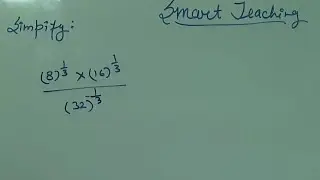 Simpify:
Smart Teaching
(8)^{1/3} × (16)^{1/3}
(32)^{-1/3}